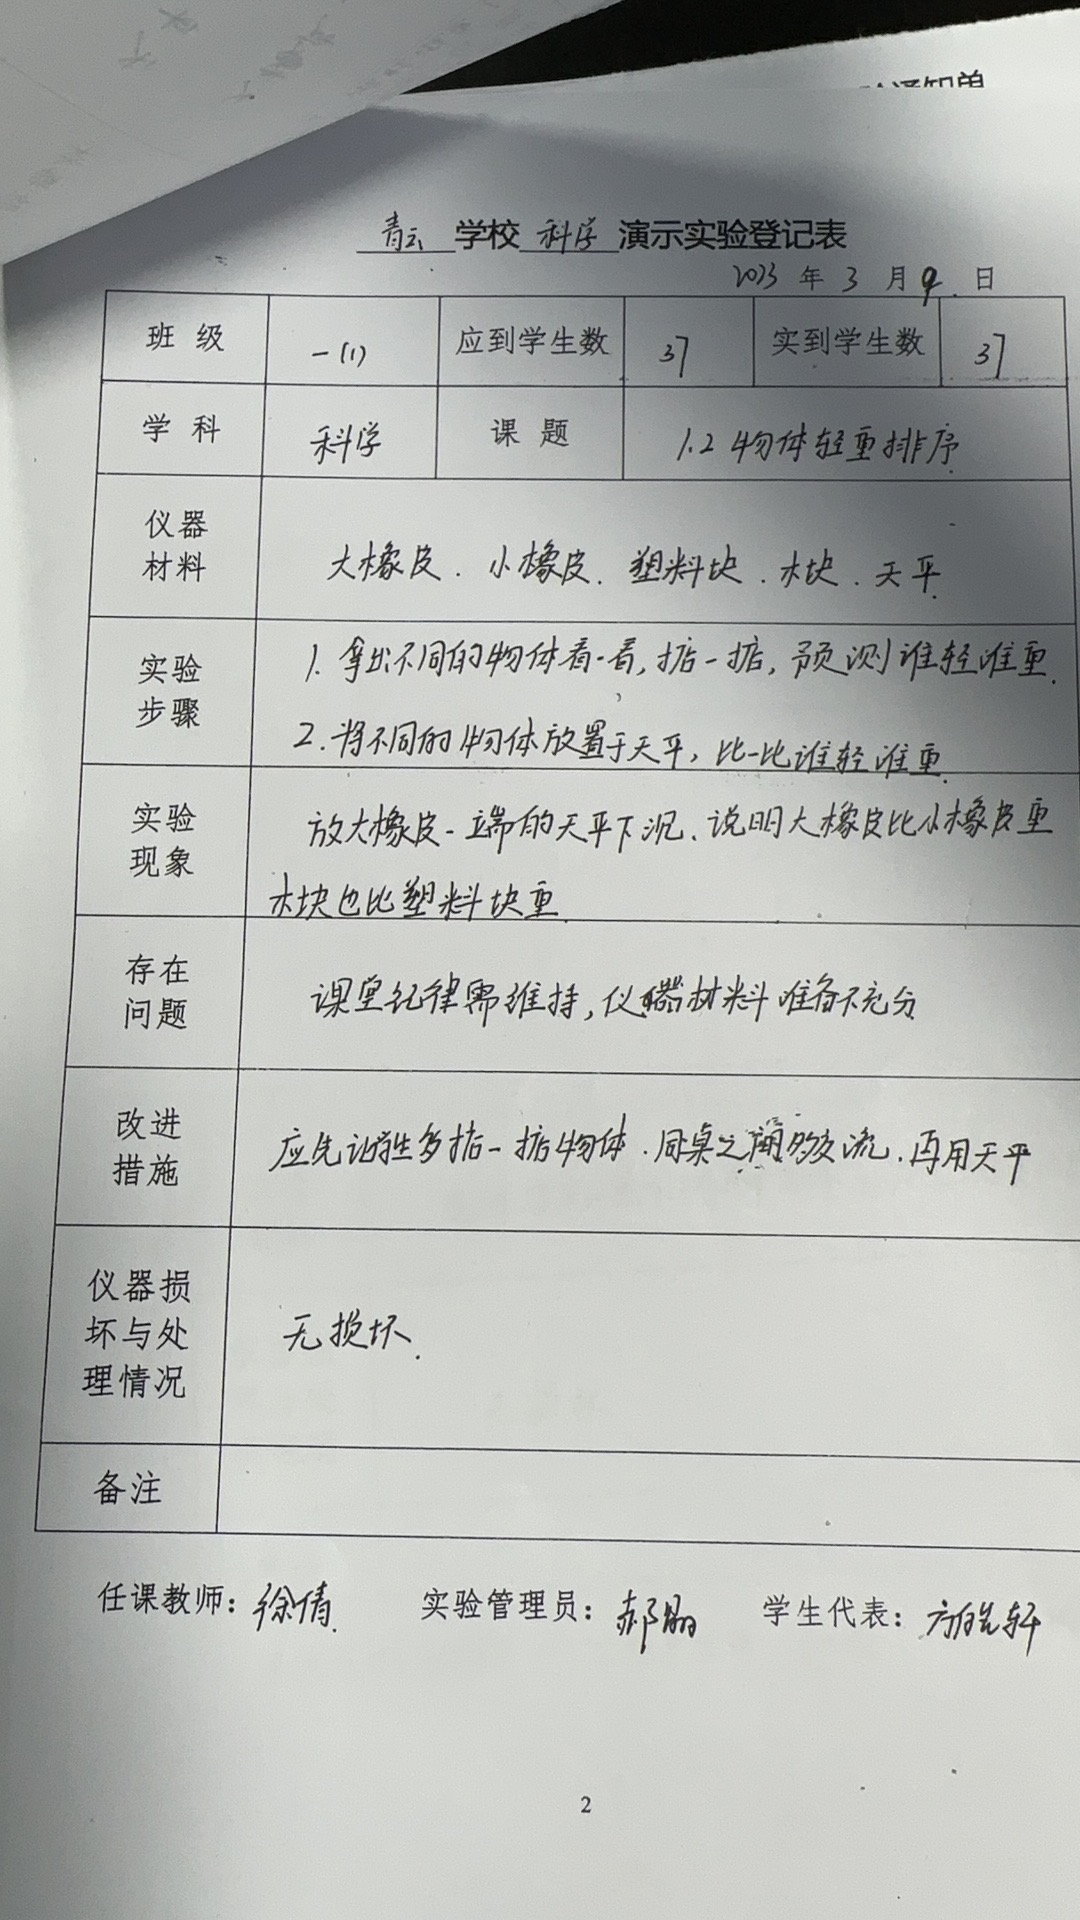 青云 学校 科学 演示实验登记表
2023 年 3 月 9 日
班 级 一(1) 应到学生数 37 实到学生数 37
学 科 科学 课 题 1.2 物体轻重排序
仪器
材料
大橡皮. 小橡皮. 塑料块. 木块. 天平.
实验
步骤
1. 拿出不同的物体看一看, 掂一掂, 预测谁轻谁重.
2. 将不同的物体放置于天平, 比一比谁轻谁重.
实验
现象
放大橡皮一端的天平下沉. 说明大橡皮比小橡皮重
木块也比塑料块重.
存在
问题
课堂纪律需维持, 仪器材料准备不充分
改进
措施
应先让学生多掂一掂物体. 同桌之间多交流. 再用天平
仪器损
坏与处
理情况
无损坏.
备注
任课教师: 徐倩. 实验管理员: 郝晶 学生代表: 方皓轩
2